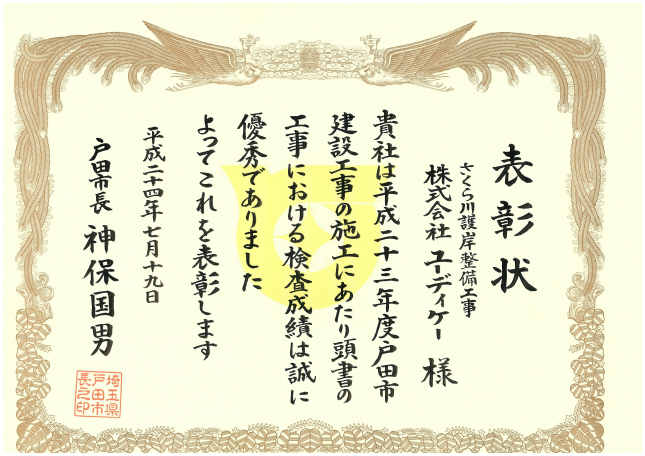 表彰状
さくら川護岸整備工事
株式会社 ユーディケー 様
貴社は平成二十三年度戸田市
建設工事の施工にあたり頭書の
工事における検査成績は誠に
優秀でありました
よってこれを表彰します
平成二十四年七月十九日
戸田市長 神保国男
埼玉県
戸田市
長之印